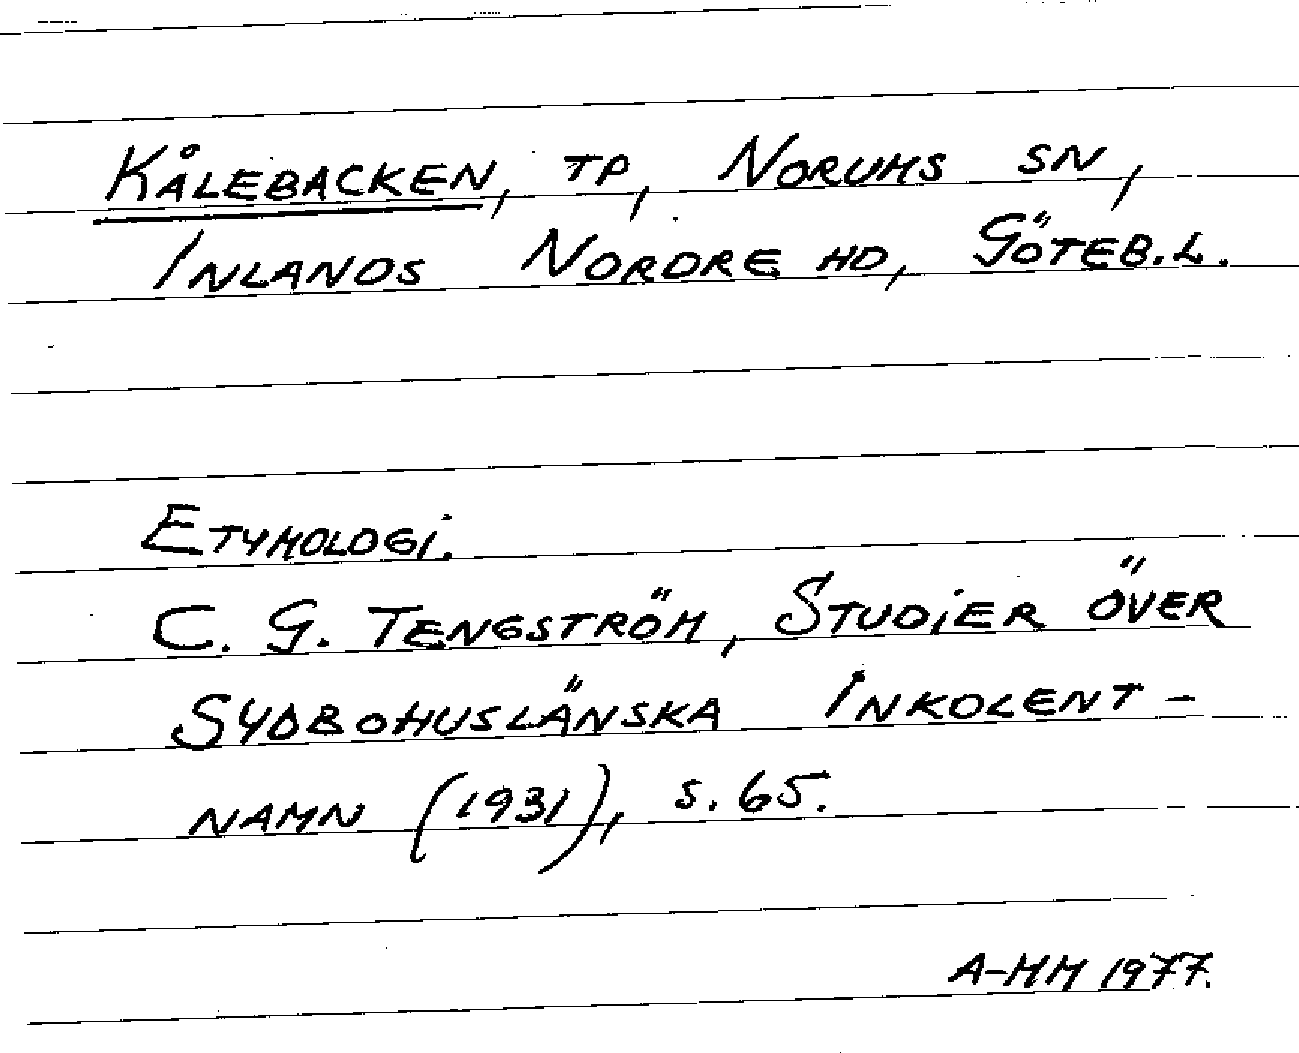 KÅLEBACKEN, TP, NORUMS SN,
INLANDS NORDRE HD, GÖTEB.L.
ETYMOLOGI.
C. G. TENGSTRÖM, STUDIER ÖVER
SYDBOHUSLÄNSKA INKOLENT-
NAMN (1931), S. 65.
A-MM 1977.